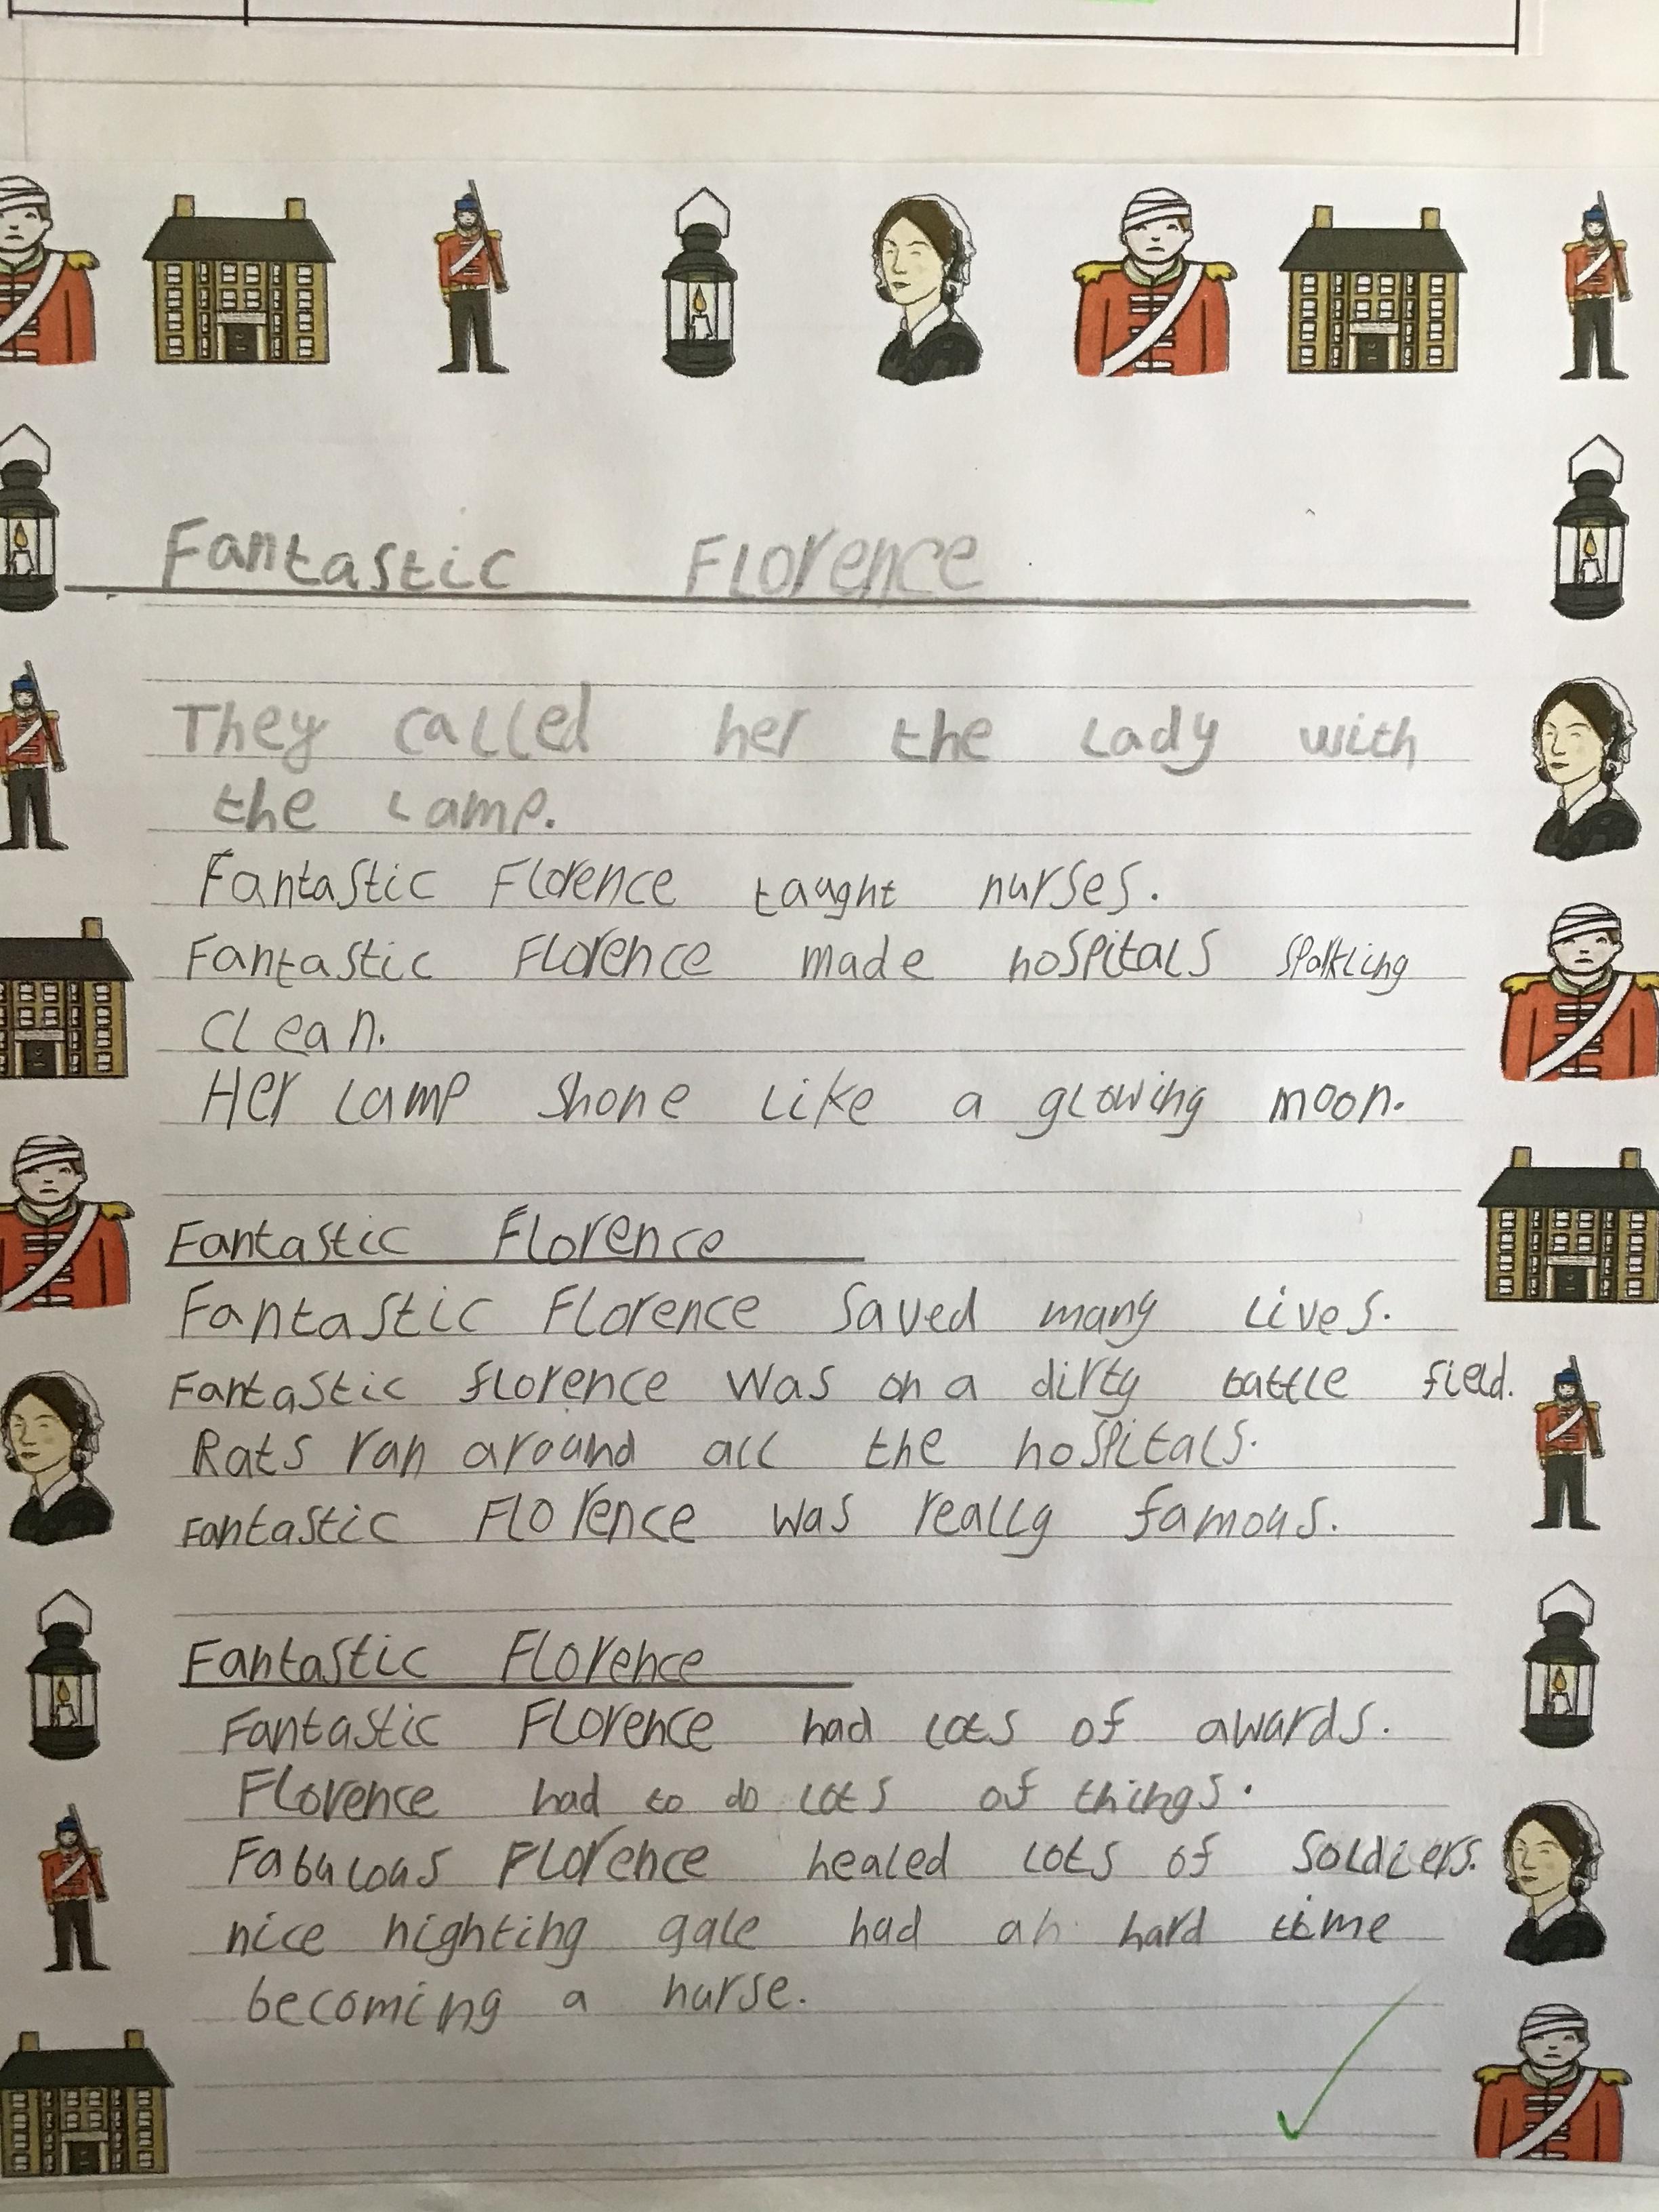 Fantastic Florence
They called her the Lady with
the Lamp.
Fantastic Florence taught nurses.
Fantastic Florence made hospitals sparkling
clean.
Her Lamp shone like a glowing moon.
Fantastic Florence
Fantastic Florence saved many lives.
Fantastic florence was on a dirty battle field.
Rats ran around all the hospitals.
Fantastic Florence was really famous.
Fantastic Florence
Fantastic Florence had lots of awards.
Florence had to do lots of things.
Fabulous Florence healed lots of soldiers.
nice nighting gale had an hard time
becoming a nurse.